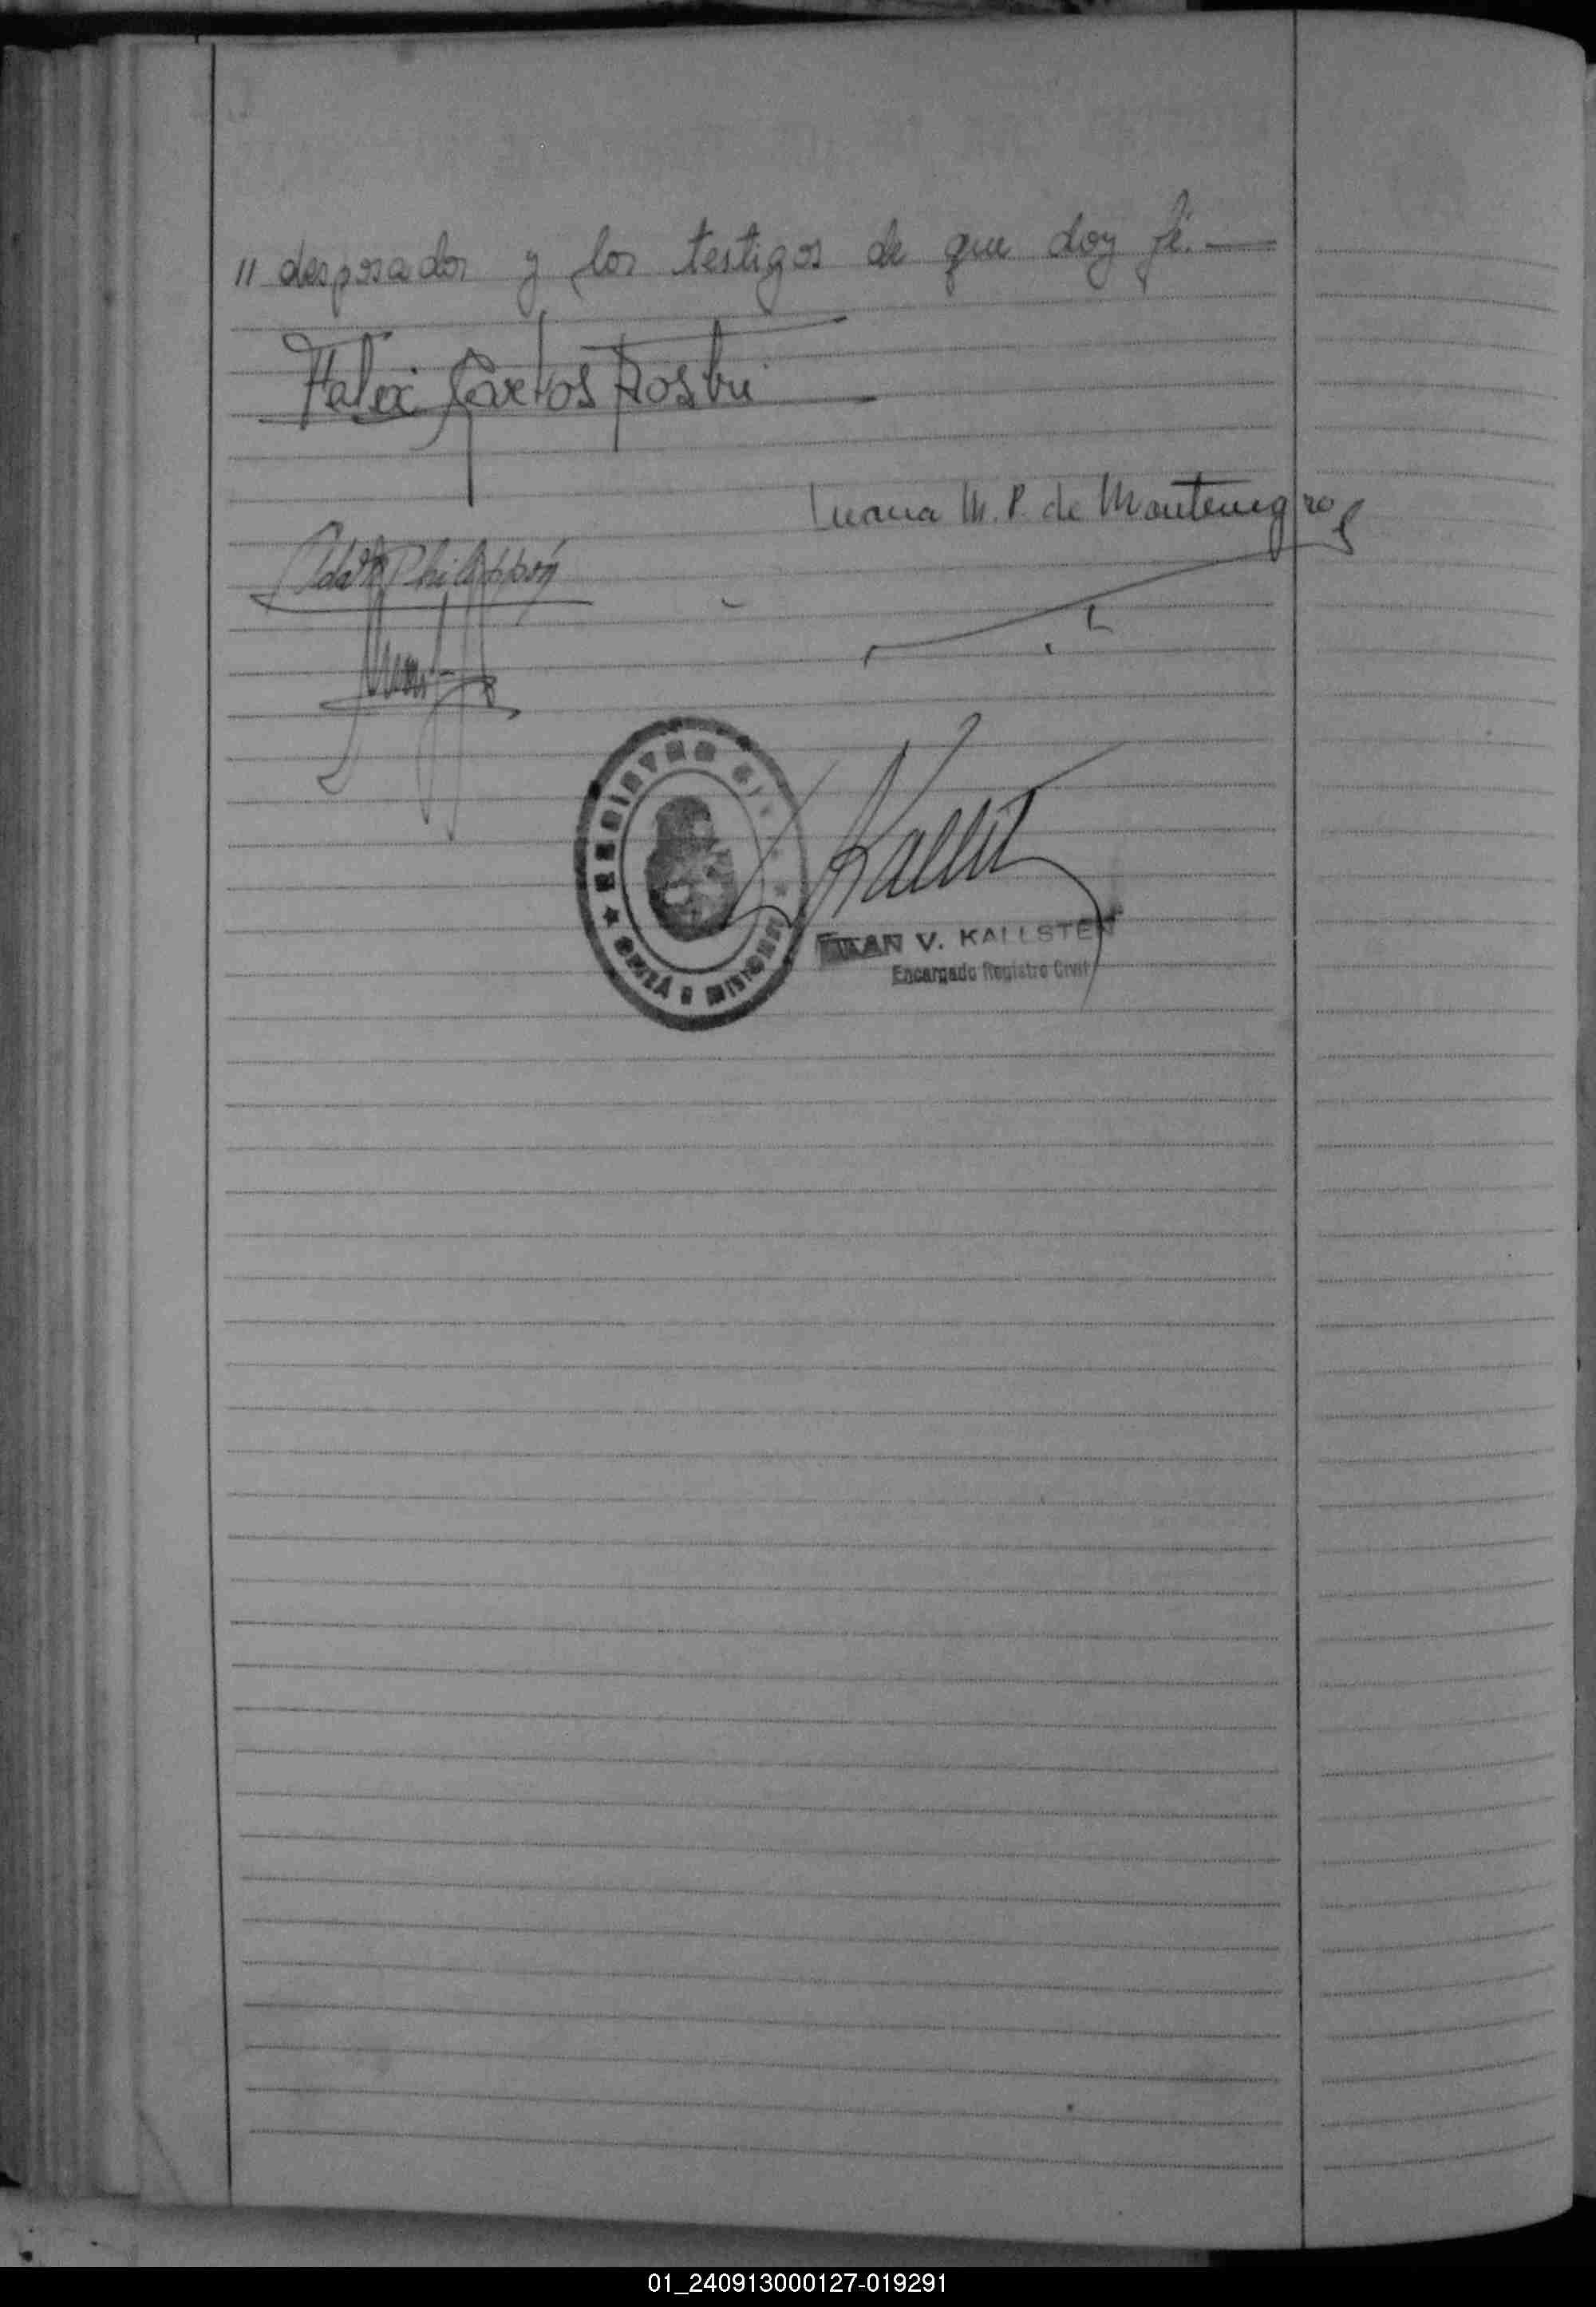 " desposados y los testigos de que doy fé. —
Felix Carlos
Juana M. P. de Montenegro
Philippón
REGISTRO CIVIL
★ OBERÁ - MISIONES ★
V. KALLSTEN
Encargado Registro Civil
01_240913000127-019291